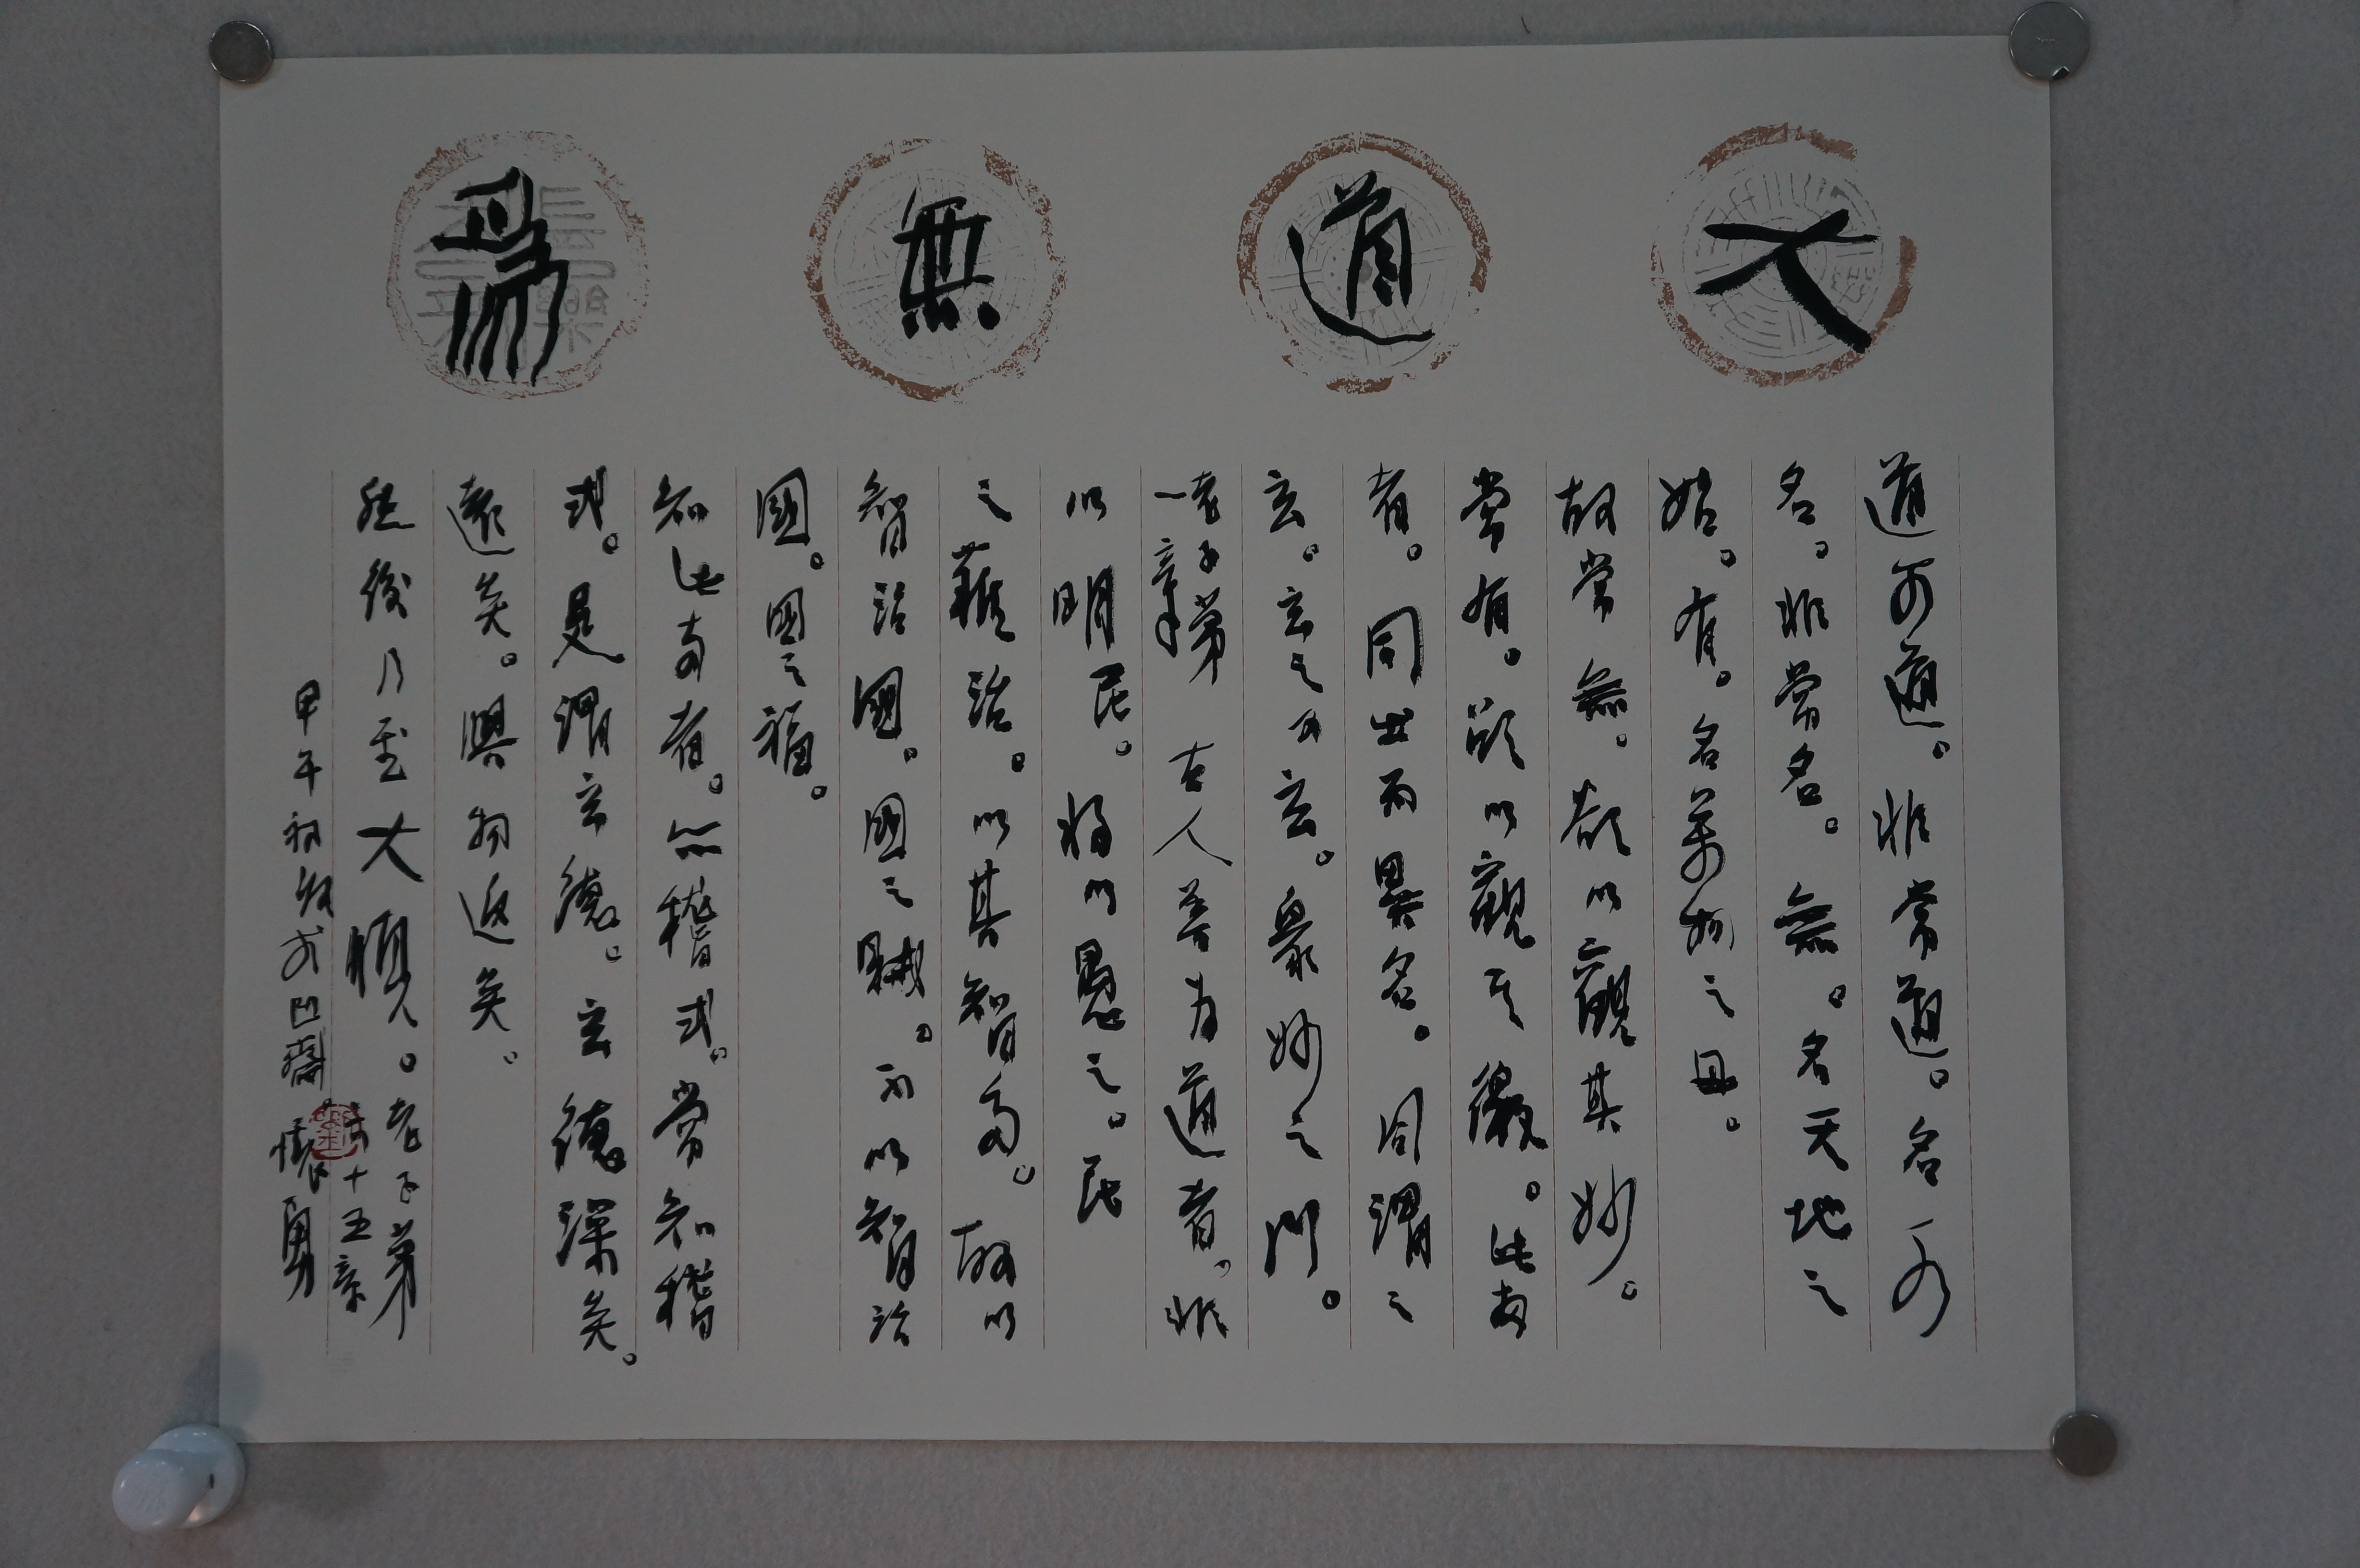 大道無爲
道可道。非常道。名可
名。非常名。無。名天地之
始。有。名萬物之母。
故常無。欲以觀其妙。
常有。欲以觀其徼。此兩
者。同出而異名。同謂之
玄。玄之又玄。衆妙之門。
老子第一章
古人善为道者。非
以明民。將以愚之。民
之難治。以其智多。故以
智治國。國之賊。不以智治
國。國之福。
知此兩者。亦稽式。常知稽
式。是謂玄德。玄德深矣。
遠矣。與物返矣。
然後乃至大順。老子第
六十五章
甲午初秋於凹齋 懷勇